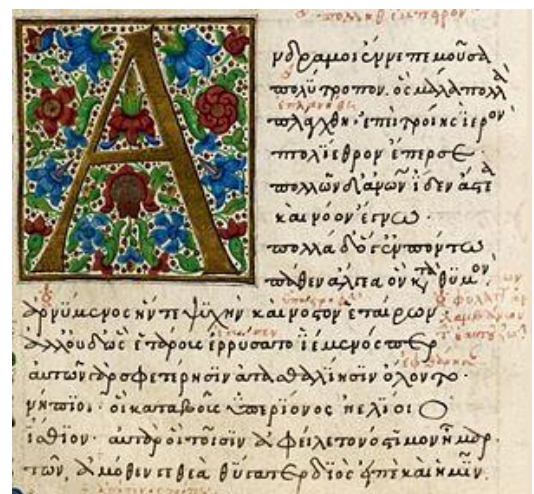 Ἄνδρα μοι ἔννεπε μοῦσα
πολύτροπον. ὃς μάλα πολλὰ
πλάγχθη· ἐπεὶ τροίης ἱερὸν
πτολίεθρον ἔπερσε·
πολλῶν δ' ἀνῶν ἴδεν ἄστεα
καὶ νόον ἔγνω·
πολλὰ δ' ὅγ' ἐν πόντω
πάθεν ἄλγεα ὃν κατὰ θυμόν,
ἀρνύμενος ἥν τε ψυχὴν καὶ νόστον ἑταίρων
ἀλλ' οὐδ' ὣς ἑτάρους ἐρρύσατο ἱέμενός περ
αὐτῶν γὰρ σφετέρησιν ἀτασθαλίησιν ὄλοντο·
νήπιοι· οἳ κατὰ βοῦς ὑπερίονος ἠελίοιο
ἤσθιον· αὐτὰρ ὁ τοῖσιν ἀφείλετο νόστιμον ἦμαρ.
τῶν, ἁμόθεν γε θεὰ θύγατερ διὸς εἰπὲ καὶ ἡμῖν.